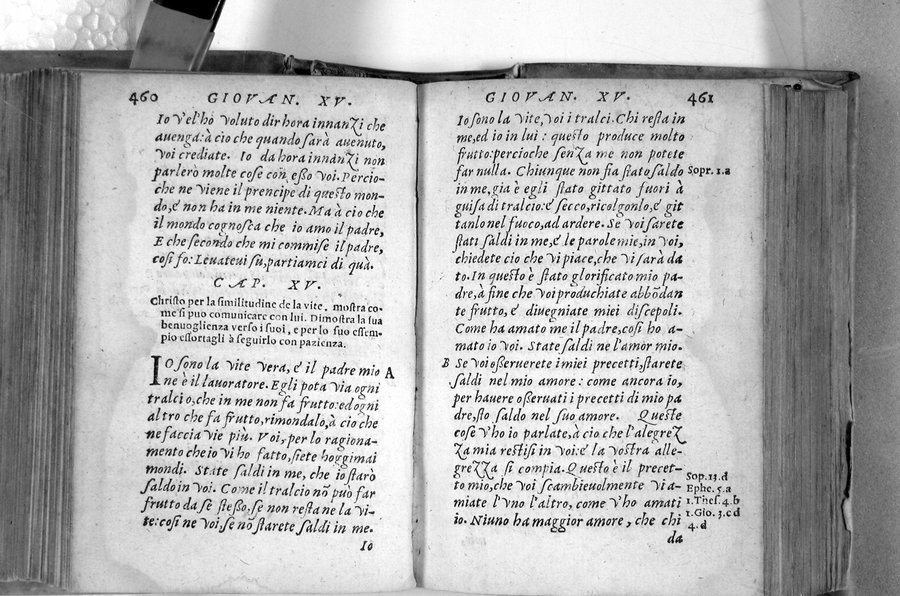 460 GIOVAN. XV.
Io v'el'ho voluto dir hora innanzi che
auenga: à cio che quando sarà auenuto,
voi crediate. Io da hora innanzi non
parlerò molte cose con esso voi. Percio-
che ne viene il prencipe di questo mon-
do, é non ha in me niente. Ma à cio che
il mondo cognosca che io amo il padre,
E che secondo che mi commise il padre,
cosi fo: Leuateui su, partiamci di quà.
CAP. XV.
Christo per la similitudine de la vite, mostra co-
me si puo comunicare con lui. Dimostra la sua
beniuoglienza verso i suoi, e per lo suo essem-
pio essortagli à seguirlo con pazienza.
IO sono la vite vera, é il padre mio A
ne è il lauoratore. Egli pota via ogni
tralcio, che in me non fa frutto: ed ogni
altro che fa frutto, rimondalo, à cio che
ne faccia vie più. Voi, per lo ragiona-
mento che io vi ho fatto, siete hoggimai
mondi. State saldi in me, che io starò
saldo in voi. Come il tralcio nõ può far
frutto da sè stesso, se non resta ne la vi-
te: cosi ne voi, se nõ starete saldi in me.
Io
GIOVAN. XV. 461
Io sono la vite, voi i tralci. Chi resta in
me, ed io in lui: questo produce molto
frutto: percioche senza me non potete
far nulla. Chiunque non fia stato saldo Sopr. 1.a
in me, già è egli stato gittato fuori à
guisa di tralcio: é secco, ricolgonlo, é git
tanlo nel fuoco, ad ardere. Se voi sarete
stati saldi in me, é le parole mie, in voi,
chiedete cio che vi piace, che vi sarà da
to. In questo è stato glorificato mio pa-
dre, à fine che voi produchiate abbõdan
te frutto, é diuegniate miei discepoli.
Come ha amato me il padre, cosi ho a-
mato io voi. State saldi ne l'amor mio.
B Se voi osseruerete i miei precetti, starete
saldi nel mio amore: come ancora io,
per hauere osseruati i precetti di mio pa
dre, sto saldo nel suo amore. Queste
cose v'ho io parlate, à cio che l'alegrez
za mia resti si in voi: é la vostra alle-
grezza si compia. Questo è il precet-
to mio, che voi scambieuolmente vi a- Sop. 13.d
miate l'vno l'altro, come v'ho amati Ephe. 5.a
io. Niuno ha maggior amore, che chi 1.Thes. 4.b
1.Gio. 3.cd
4.d
da